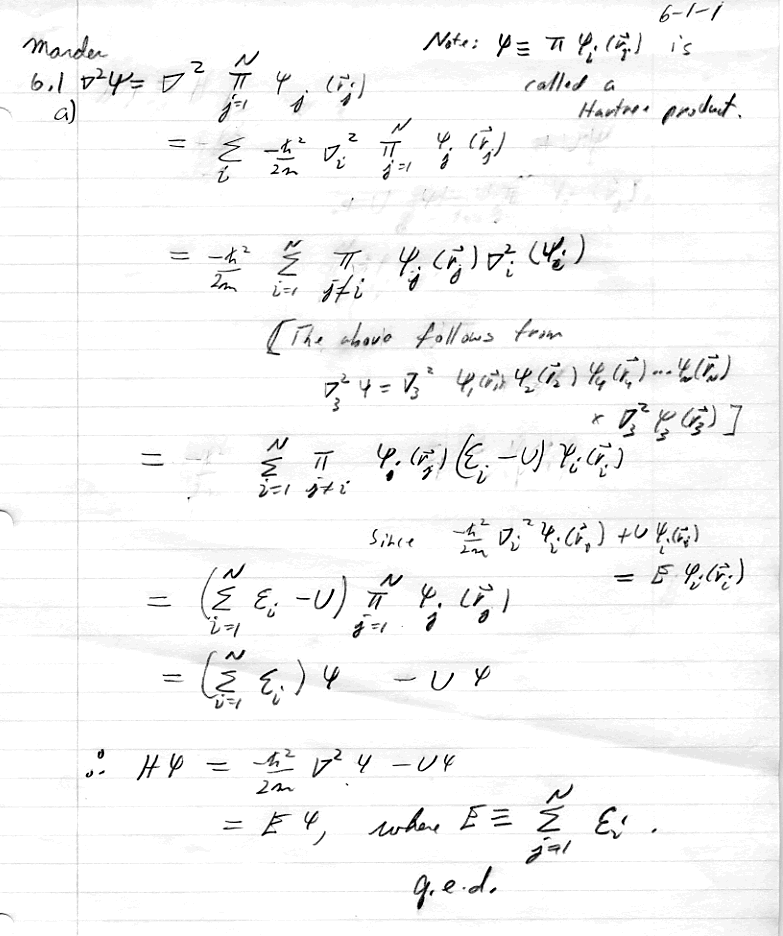 6-1-1
Marder
Note: Ψ ≡ π ψ_i (r⃗_j) is
called a
Hartree product.
6.1 ∇²Ψ = ∇² π_{j=1}^{N} ψ_j (r⃗_j)
a)
= Σ_i -ħ²/2m ∇_i² π_{j=1}^{N} ψ_j (r⃗_j)
= -ħ²/2m Σ_{i=1}^{N} π_{j≠i} ψ_j (r⃗_j) ∇_i² (ψ_i)
[The above follows from
∇_3² ψ = ∇_3² ψ_1(r⃗_1) ψ_2(r⃗_2) ψ_4(r⃗_4) ... ψ_N(r⃗_N)
× ∇_3² ψ_3 (r⃗_3) ]
= Σ_{i=1}^{N} π_{j≠i} ψ_j (r⃗_j) (ε_i - U) ψ_i (r⃗_i)
Since -ħ²/2m ∇_i² ψ_i (r⃗_i) + U ψ_i (r⃗_i)
= E ψ_i (r⃗_i)
= (Σ_{i=1}^{N} ε_i - U) π_{j=1}^{N} ψ_j (r⃗_j)
= (Σ_{i=1}^{N} ε_i) ψ - U ψ
∴ Hψ = -ħ²/2m ∇² ψ - Uψ
= E ψ, where E ≡ Σ_{j=1}^{N} ε_i .
q.e.d.